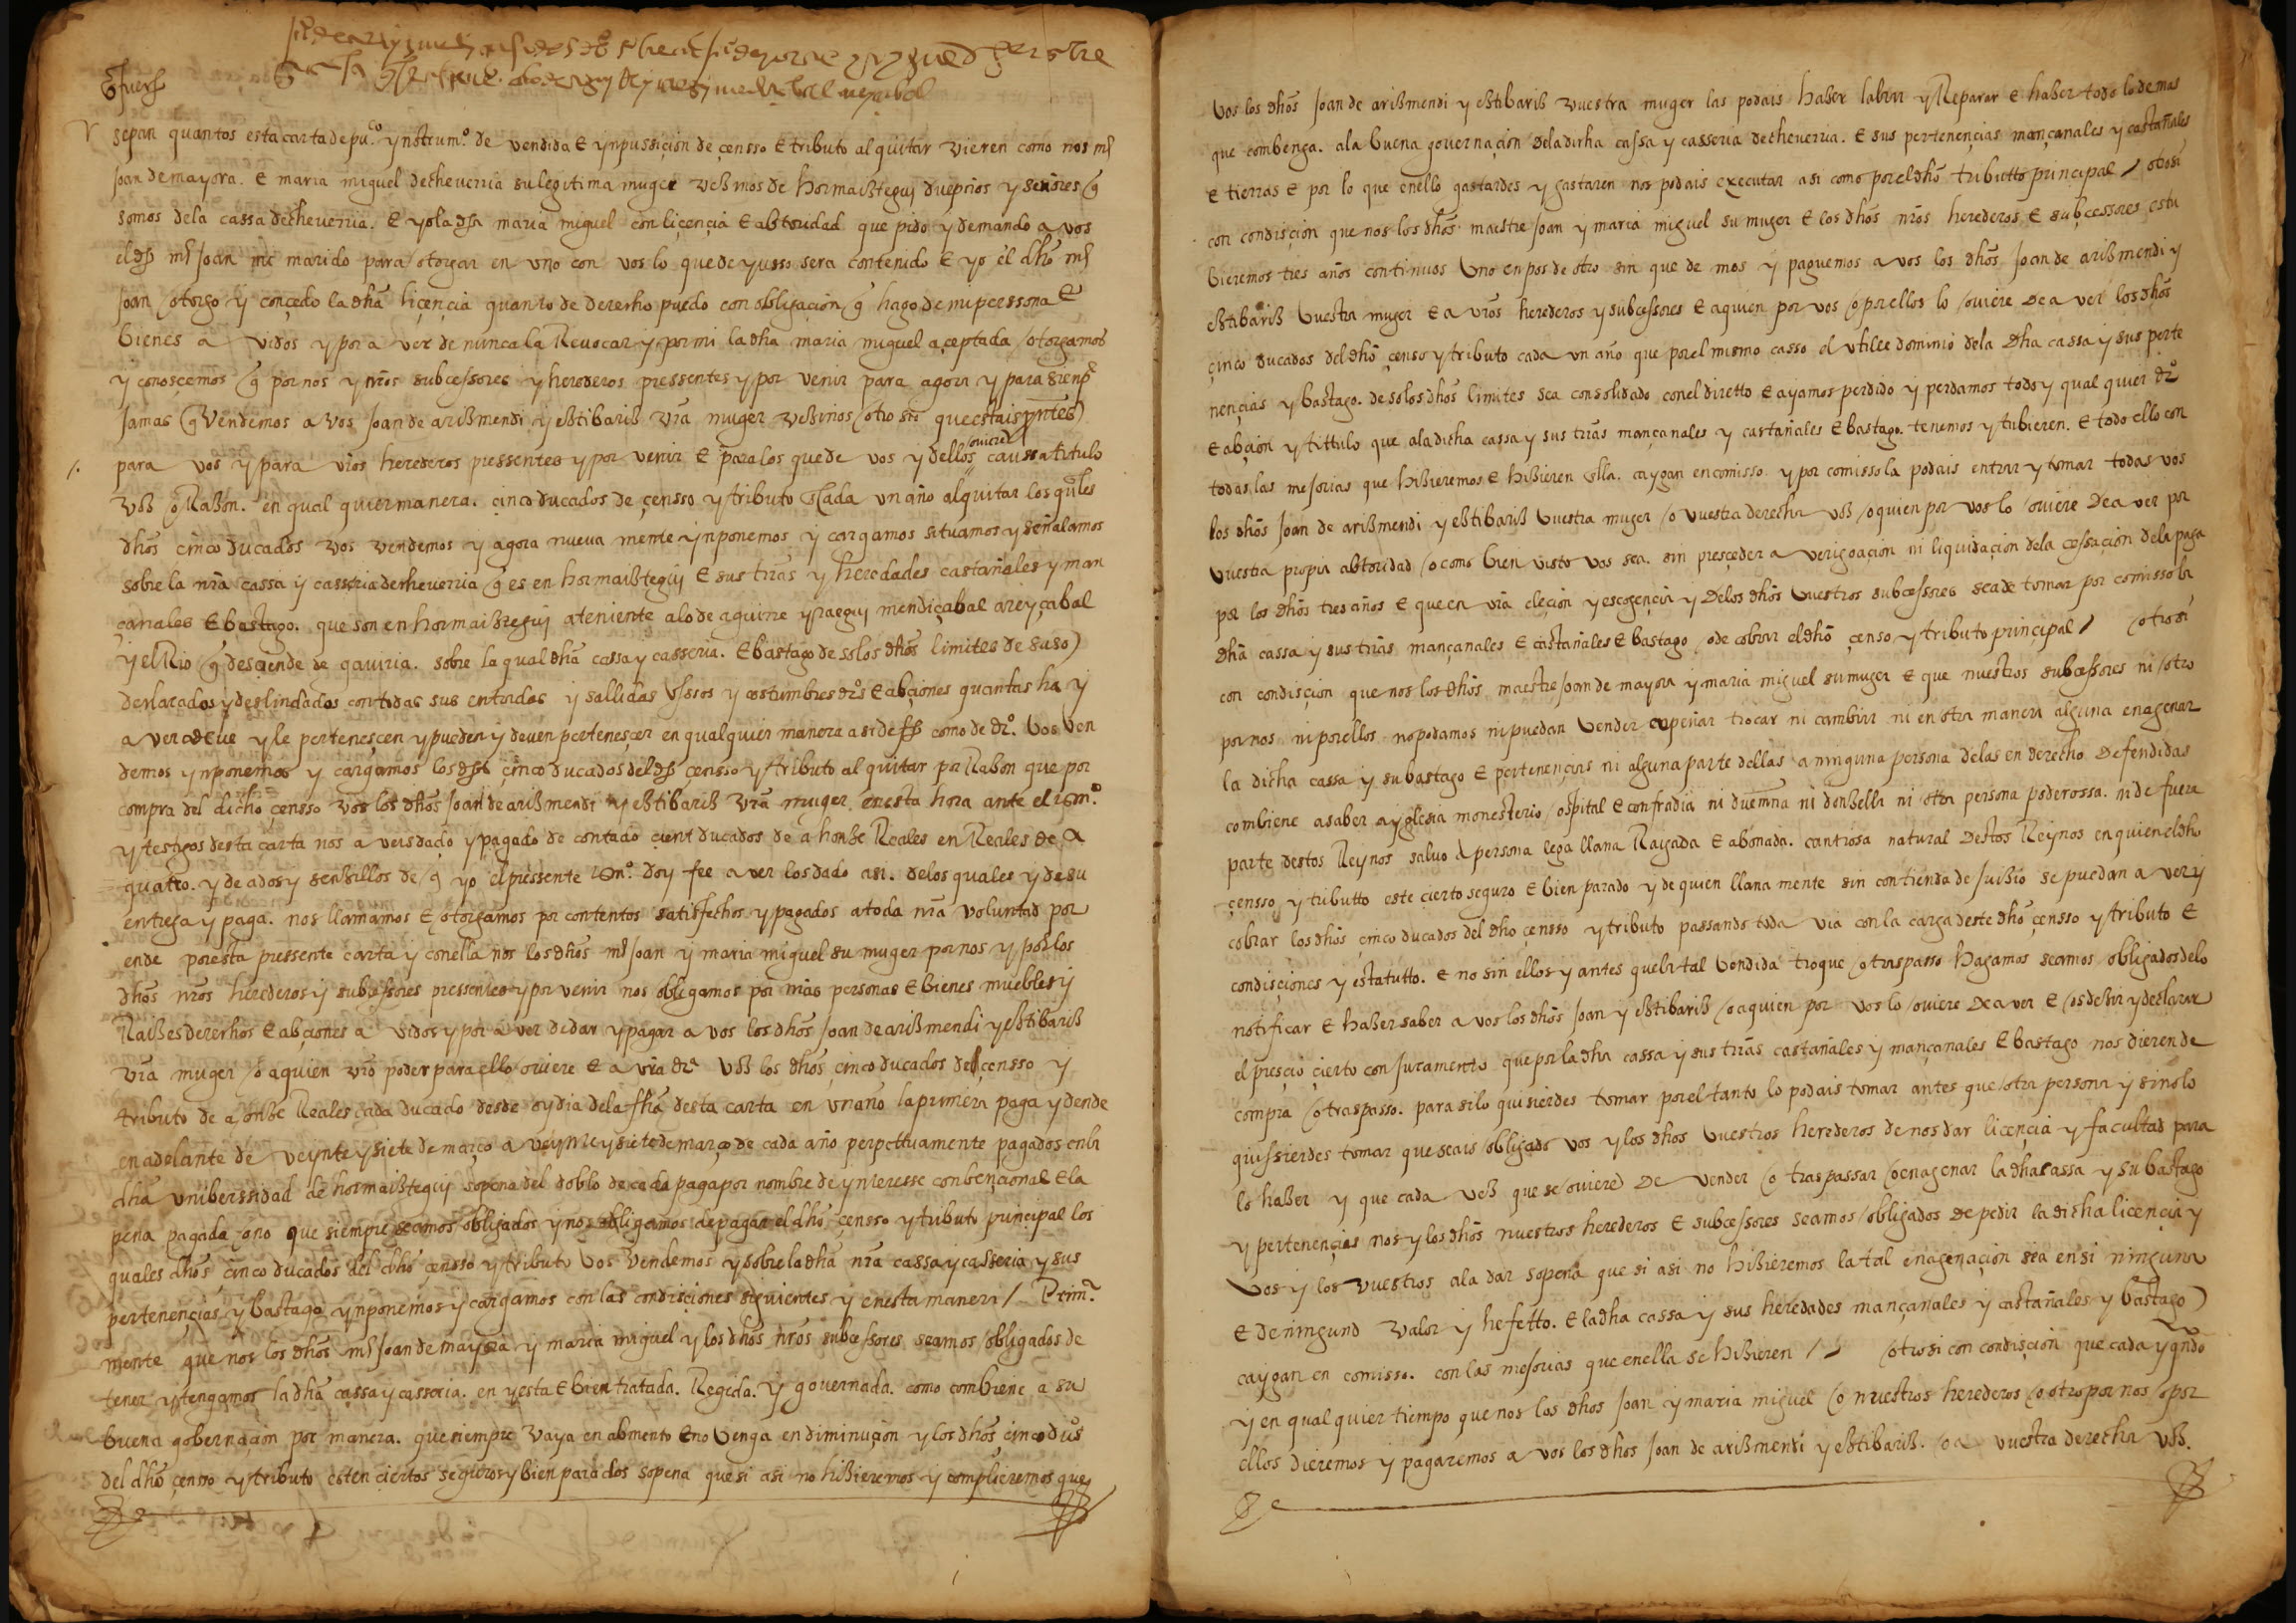 sepan quantos esta carta de pu.co ynstrum.o de vendida E ynpussiçion de çensso E tributo al quitar vieren como nos mr
Joan de mayora. E maria miguel de cheverria su legitima muger veßinos de hormaiztegui dueños y señores q̃
somos dela cassa de cheverria. E yo la dha maria miguel con liçençia E abtoridad que pido y demando a vos
el dho mr Joan mi marido para otorgar en vno con vos lo que de yusso sera contenido E yo el dho mr
Joan otorgo y conçedo la dha liçençia quanto de derecho puedo con obligaçion q̃ hago de mi perssona E
bienes a vidos y por a ver de nunca la Revocar y por mi la dha maria miguel açeptada otorgamos
y conosçemos q̃ por nos y nr̃os subçessores y herederos pressentes y por venir para agora y para sienp̃
Jamas q̃ Vendemos a vos Joan de arißmendi y eßtibariß vr̃a muger veßinos otro si que estais pñtes
para vos y para vr̃os herederos pressentes y por venir E para los que de vos y dellos ouiere caussa titulo
voß o Raßon. en qual quier manera. çinco ducados de çensso y tributo Cada un año al quitar los q̃les
dhos cinco ducados vos vendemos y agora nueva mente ynponemos y cargamos situamos y señalamos
sobre la nr̃a cassa y casseria de cheverria q̃ es en hormaiztegui E sus trr̃as y heredades castañales y man
çanales E bastago. que son en hormaiztegui ateniente a lo de aguirre yraegui mendiçabal areyçabal
y el Rio q̃ desçiende de gaviria. sobre la qual dha cassa y casseria. E bastago de solos dhos limites de suso
declarados y deslindados con todas sus entradas y sallidas vssos y costumbres dr̃os E abçiones quantas ha y
a ver deve y le pertenesçen y pueden y deven pertenesçer en qualquier manera asi de ffo como de dr̃o. Vos ven
demos ynponemos y cargamos los dhos çinco ducados del dho çensso y tributo al quitar por Raßon que por
compra del dicho çensso vos los dhos Joan de arißmendi y eßtibariß vr̃a muger en esta hora ante el scrno
y testigos desta carta nos a veis dado y pagado de contado çient ducados de a honße Reales en Reales de a
quatro. y de a dos y senßillos de q̃ yo el pressente scrno doy fee a ver los dado asi. delos quales y de su
entrega y paga. nos llamamos E otorgamos por contentos satisfechos y pagados a toda nr̃a voluntad por
ende por esta pressente carta y con ella nos los dhos mr Joan y maria miguel su muger por nos y por los
dhos nr̃os herederos y subçessores pressentes y por venir nos obligamos por nr̃as personas E bienes muebles y
Raißes derechos E abçiones a vidos y por a ver de dar y pagar a vos los dhos Joan de arißmendi y eßtibariß
vr̃a muger o a quien vr̃o poder para ello ouiere E a vr̃a dr̃a voß los dhos çinco ducados del çensso y
tributo de a onße Reales cada ducado desde oy dia dela fha desta carta en vn año la primera paga y dende
en adelante de veynte y siete de março a veynte y siete de março de cada año perpettuamente pagados en la
dha vniberssidad de hormaiztegui so pena del doblo de cada paga por nombre de ynteresse conbençional E la
pena pagada o no que siempre seamos obligados y nos obligamos de pagar el dho çensso y tributo principal los
quales dhos cinco ducados del dho çensso y tributo vos Vendemos y sobre la dha nr̃a cassa y casseria y sus
pertenençias y bastago ynponemos y cargamos con las condisçiones siguientes y en esta manera / Prim.a
mente que nos los dhos mr Joan de mayora y maria miguel y los dhos nr̃os subçessores seamos obligados de
tener y tengamos la dha cassa y casseria. en yesta E bien tratada. Regida. y governada. como combiene a su
buena gobernaçion por manera. que siempre vaya en abmento E no Venga en diminuçion y los dhos çinco dus
del dho çensso y tributo esten çiertos seguros y bien parados so pena que si asi no hißieremos y complieremos que
Vos los dhos Joan de arißmendi y eßtibariß vuestra muger las podais haßer labrar y Reparar E haßer todo lo demas
que combenga. a la buena governaçion de la dicha cassa y casseria de cheverria. E sus pertenençias mançanales y castañales
E tierras E por lo que en ello gastardes y gastaren nos podais executar asi como por el dho tributto principal / otrosi
con condisçion que nos los dhos maestre Joan y maria miguel su muger E los dhos nr̃os herederos E subçessores estu
bieremos tres años continuos Uno en pos de otro sin que de mos y paguemos a vos los dhos Joan de arißmendi y
eßtibariß Vuestra muger E a vr̃os herederos y subçessores E a quien por vos o por ellos lo ouiere de a ver los dhos
çinco ducados del dho çenso y tributo cada un año que por el mismo casso el vtille dominio dela dha cassa y sus perte
nençias y bastago. de solos dhos limites sea consolidado con el diretto E ayamos perdido y perdamos todo y qual quier dr̃o
E abçion y tittulo que a la dicha cassa y sus trr̃as mançanales y castañales E bastago. tenemos y tubieren. E todo ello con
todas las mejorias que hißieremos E hißieren en ella. caygan en comisso. y por comisso la podais entrar y tomar todas vos
los dhos Joan de arißmendi y eßtibariß Vuestra muger o vuestra derecha voß o quien por vos lo ouiere de a ver por
Vuestra propia abtoridad o como bien visto vos sea. sin presçeder a verigoaçion ni liquidaçion dela çessaçion dela paga
por los dhos tres años E que en vr̃a eleçion y escogençia y delos dhos Vuestros subçessores sea de tomar por comisso la
dha cassa y sus trr̃as mançanales E castañales E bastago o de cobrar el dho çenso y tributo principal / otrosi
con condisçion que nos los dhos maestre Joan de mayora y maria miguel su muger E que nuestros subçessores ni otro
por nos ni por ellos no podamos ni puedan Vender enpeñar trocar ni cambiar ni en otra manera alguna enagenar
la dicha cassa y su bastago E pertenençias ni alguna parte dellas a ninguna persona delas en derecho defendidas
combiene a saber a yglesia monesterio ospital E confradia ni duenna ni donßella ni otra persona poderossa. ni de fuera
parte destos Reynos salvo a persona lega llana Raygada E abonada. cantiosa natural destos Reynos en quien el dho
çensso y tributto este çierto seguro E bien parado y de quien llana mente sin contienda de juißio se puedan a ver y
cobrar los dhos çinco ducados del dho çensso y tributo passando toda via con la carga deste dho çensso y tributo E
condisçiones y estatutto. E no sin ellos y antes que la tal Vendida troque o traspasso hagamos seamos obligados de lo
notificar E haßer saber a vos los dhos Joan y eßtibariß o a quien por vos lo ouiere de a ver E os deßir y declarar
el presçio çierto con Juramento que por la dha cassa y sus trr̃as castañales y mançanales E bastago nos dieren de
compra o traspasso. para si lo quisierdes tomar por el tanto lo podais tomar antes que otra persona y si no lo
quissierdes tomar que seais obligado vos y los dhos Vuestros herederos de nos dar licençia y facultad para
lo haßer y que cada veß que se ouiere de vender o traspassar o enagenar la dha cassa y su bastago
y pertenençias nos y los dhos nuestros herederos E subçessores seamos obligados de pedir la dicha licençia y
Vos y los vuestros a la dar so pena que si asi no hißieremos la tal enagenaçion sea en si ninguna
E de ningund valor y hefetto. E la dha cassa y sus heredades mançanales y castañales y bastago
caygan en comisso. con las mejorias que en ella se hißieren // otrosi con condisçion que cada y q̃ndo
y en qual quier tiempo que nos los dhos Joan y maria miguel o nuestros herederos o otro por nos o por
ellos dieremos y pagaremos a vos los dhos Joan de arißmendi y eßtibariß. o a vuestra derecha voß.